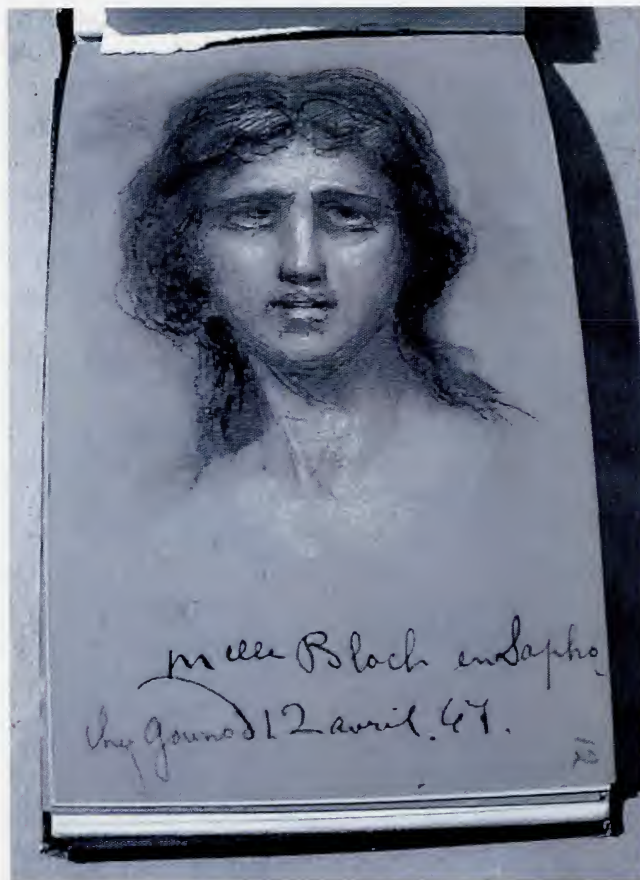 Melle Bloch en Sapho
chez Gounod 12 avril. 67.